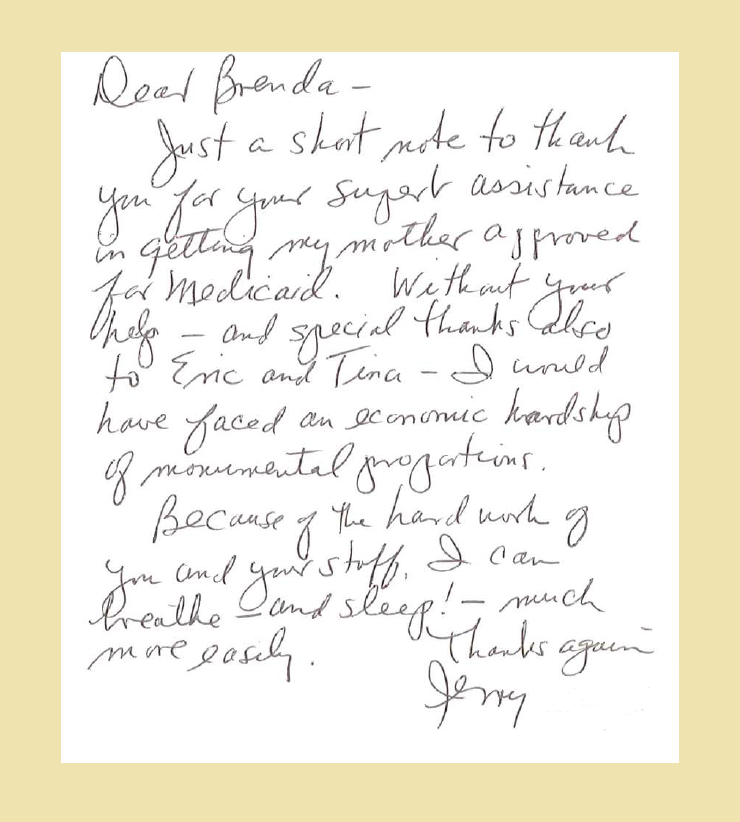 Dear Brenda –
Just a short note to thank
you for your superb assistance
in getting my mother approved
for Medicaid. Without your
help – and special thanks also
to Eric and Tina – I would
have faced an economic hardship
of monumental proportions.
Because of the hard work of
you and your staff, I can
breathe – and sleep! – much
more easily.
Thanks again
Jerry